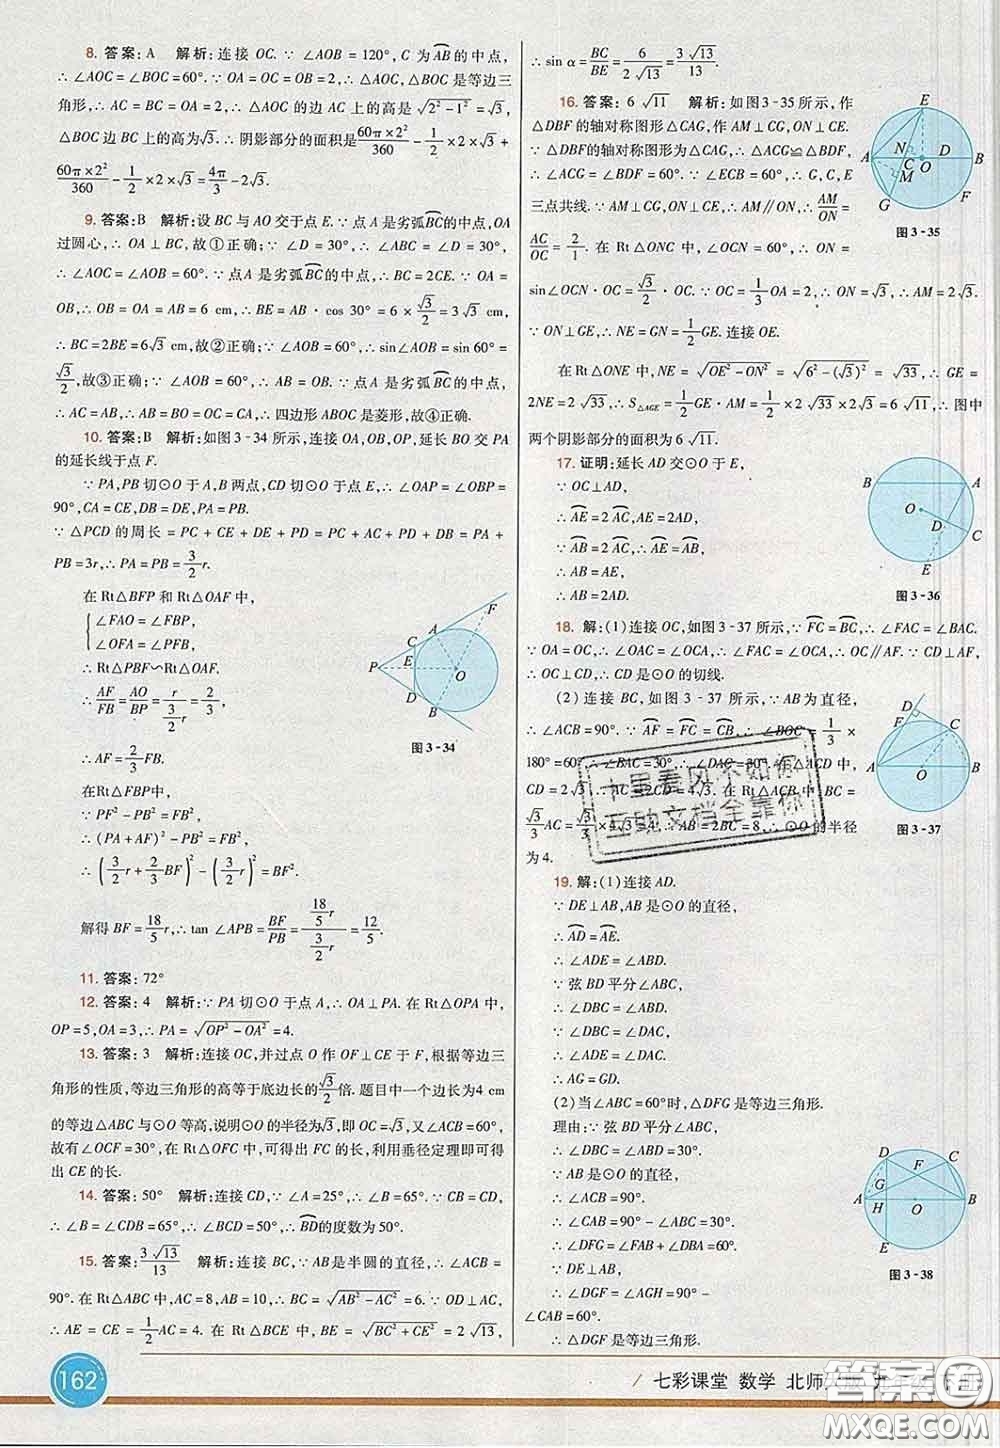 8. 答案:A　解析:连接 OC. ∵ ∠AOB = 120°, C 为AB的中点,
∴ ∠AOC = ∠BOC = 60°. ∵ OA = OC = OB = 2, ∴ △AOC、△BOC 是等边三
角形, ∴ AC = BC = OA = 2, ∴ △AOC 的边 AC 上的高是 √(2² - 1²) = √3,
△BOC 边 BC 上的高为√3. ∴ 阴影部分的面积是 60π×2²/360 - 1/2 ×2×√3 +
60π×2²/360 - 1/2 ×2×√3 = 4/3 π - 2√3.
9. 答案:B　解析:设 BC 与 AO 交于点 E. ∵ 点 A 是劣弧BC的中点, OA
过圆心, ∴ OA ⊥ BC, 故①正确; ∵ ∠D = 30°, ∴ ∠ABC = ∠D = 30°,
∴ ∠AOB = 60°. ∵ 点 A 是劣弧BC的中点, ∴ BC = 2CE. ∵ OA =
OB, ∴ OB = OA = AB = 6 cm, ∴ BE = AB · cos 30° = 6 × √3/2 = 3√3 cm,
∴ BC = 2BE = 6√3 cm, 故②正确; ∵ ∠AOB = 60°, ∴ sin∠AOB = sin60° =
√3/2, 故③正确; ∵ ∠AOB = 60°, ∴ AB = OB. ∵ 点 A 是劣弧BC的中点,
∴ AC = AB, ∴ AB = BO = OC = CA, ∴ 四边形 ABOC 是菱形, 故④正确.
10. 答案:B　解析:如图 3-34 所示, 连接 OA, OB, OP, 延长 BO 交 PA
的延长线于点 F.
∵ PA, PB 切⊙O 于 A, B 两点, CD 切⊙O 于点 E, ∴ ∠OAP = ∠OBP =
90°, CA = CE, DB = DE, PA = PB.
∵ △PCD 的周长 = PC + CE + DE + PD = PC + AC + PD + DB = PA +
PB = 3r, ∴ PA = PB = 3/2 r.
在 Rt△BFP 和 Rt△OAF 中,
{∠FAO = ∠FBP,
∠OFA = ∠PFB,
∴ Rt△PBF∽Rt△OAF.
∴ AF/FB = AO/BP = r/(3/2 r) = 2/3,
∴ AF = 2/3 FB.
在 Rt△FBP 中,
∵ PF² - PB² = FB²,
∴ (PA + AF)² - PB² = FB²,
∴ (3/2 r + 2/3 BF)² - (3/2 r)² = BF²,
解得 BF = 18/5 r, ∴ tan ∠APB = BF/PB = (18/5 r)/(3/2 r) = 12/5.
P C A F E O D B
图 3-34
11. 答案:72°
12. 答案:4　解析:∵ PA 切⊙O 于点 A, ∴ OA ⊥ PA. 在 Rt△OPA 中,
OP = 5, OA = 3, ∴ PA = √(OP² - OA²) = 4.
13. 答案:3　解析:连接 OC, 并过点 O 作 OF⊥CE 于 F, 根据等边三
角形的性质, 等边三角形的高等于底边长的√3/2倍. 题目中一个边长为4 cm
的等边△ABC 与⊙O 等高, 说明⊙O 的半径为√3, 即 OC = √3, 又∠ACB = 60°,
故有∠OCF = 30°, 在 Rt△OFC 中, 可得出 FC 的长, 利用垂径定理即可得
出 CE 的长.
14. 答案:50°　解析:连接 CD, ∵ ∠A = 25°, ∴ ∠B = 65°. ∵ CB = CD,
∴ ∠B = ∠CDB = 65°, ∴ ∠BCD = 50°, ∴ BD的度数为 50°.
15. 答案:3√13/13　解析:连接 BC, ∵ AB 是半圆的直径, ∴ ∠ACB =
90°. 在 Rt△ABC 中, AC = 8, AB = 10, ∴ BC = √(AB² - AC²) = 6. ∵ OD⊥AC,
∴ AE = CE = 1/2 AC = 4. 在 Rt△BCE 中, BE = √(BC² + CE²) = 2√13,
∴ sin α = BC/BE = 6/(2√13) = 3√13/13.
16. 答案:6√11　解析:如图 3-35 所示, 作
△DBF 的轴对称图形△CAG, 作 AM⊥CG, ON⊥CE.
∵ △DBF的轴对称图形为△CAG, ∴ △ACG≌△BDF,
∴ ∠ACG = ∠BDF = 60°. ∵ ∠ECB = 60°, ∴ G, C, E
三点共线. ∵ AM⊥CG, ON⊥CE, ∴ AM∥ON, ∴ AM/ON =
AC/OC = 2/1. 在 Rt△ONC 中, ∠OCN = 60°, ∴ ON =
sin∠OCN·OC = √3/2·OC. ∵ OC = 1/3 OA = 2, ∴ ON = √3, ∴ AM = 2√3.
∵ ON⊥GE, ∴ NE = GN = 1/2 GE. 连接 OE.
在 Rt△ONE 中, NE = √(OE² - ON²) = √(6² - (√3)²) = √33, ∴ GE =
2NE = 2√33, ∴ S△AGE = 1/2 GE·AM = 1/2 ×2√33 ×2√3 = 6√11, ∴ 图中
两个阴影部分的面积为 6√11.
E N D A C O B M G F
图 3-35
17. 证明:延长 AD 交⊙O 于 E,
∵ OC⊥AD,
∴ AE = 2AC, AE = 2AD,
∵ AB = 2AC, ∴ AE = AB,
∴ AB = AE,
∴ AB = 2AD.
B A O D C E
图 3-36
18. 解:(1)连接 OC, 如图 3-37 所示, ∵ FC = BC, ∴ ∠FAC = ∠BAC.
∵ OA = OC, ∴ ∠OAC = ∠OCA, ∴ ∠FAC = ∠OCA, ∴ OC∥AF. ∵ CD⊥AF,
∴ OC⊥CD, ∴ CD 是⊙O 的切线.
(2)连接 BC, 如图 3-37 所示, ∵ AB 为直径,
∴ ∠ACB = 90°. ∵ AF = FC = CB, ∴ ∠BOC = 1/3 ×
180° = 60°, ∴ ∠BAC = 30°, ∴ ∠DAC = 30°. 在 Rt△ADC 中,
CD = 2√3, ∴ AC = 2CD = 4√3. 在 Rt△ACB 中, BC =
√3/3 AC = √3/3 ×4√3 = 4, ∴ AB = 2BC = 8, ∴ ⊙O 的半径
为 4.
D F C A O B
图 3-37
19. 解:(1)连接 AD.
∵ DE⊥AB, AB 是⊙O 的直径,
∴ AD = AE.
∴ ∠ADE = ∠ABD.
∵ 弦 BD 平分∠ABC,
∴ ∠DBC = ∠ABD.
∵ ∠DBC = ∠DAC,
∴ ∠ADE = ∠DAC.
∴ AG = GD.
(2)当∠ABC = 60°时, △DFG 是等边三角形.
理由:∵ 弦 BD 平分∠ABC,
∴ ∠DBC = ∠ABD = 30°.
∵ AB 是⊙O 的直径,
∴ ∠ACB = 90°.
∴ ∠CAB = 90° - ∠ABC = 30°.
∴ ∠DFG = ∠FAB + ∠DBA = 60°.
∵ DE⊥AB,
∴ ∠DGF = ∠AGH = 90° -
∠CAB = 60°.
∴ △DGF 是等边三角形.
D C F G A H O B E
图 3-38
十里春风不如你
互动文档全靠你
162
七彩课堂 数学 北师
答案圈
MXQE.COM